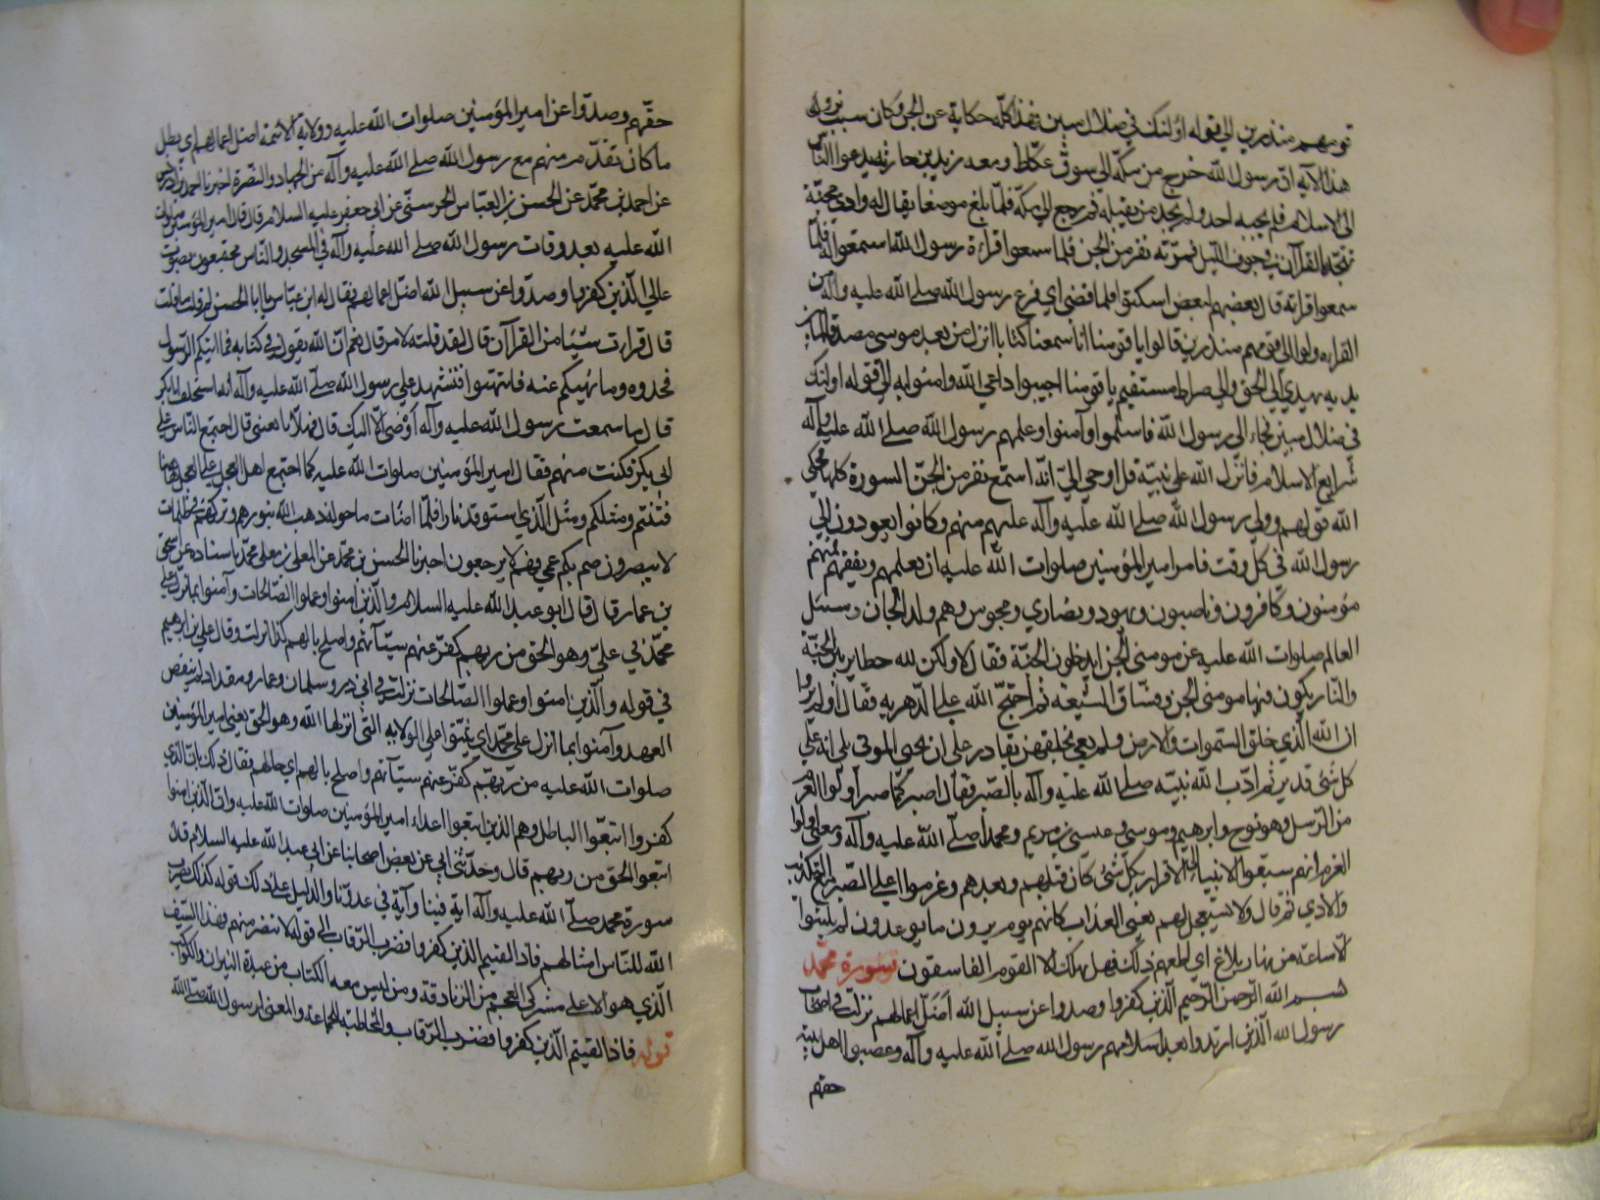 قومهم منذرين الي قوله اولئك في ضلال مبين فهذا كله حكاية عن الجن وكان سبب نزول
هذا الآية ان رسول الله خرج من مكة الي سوق عكاظ ومعه زيد بن حارثة يدعوا الناس
الي الاسلام فلم يجبه احد ولم يجد من يقبله ثم رجع الي مكة فلما بلغ موضعا يقال له وادي مجنة
تهجد بالقرآن في جوف الليل فمر به نفر من الجن فلما سمعوا قرآءة رسول الله استمعوا له فلما
سمعوا قرآنه قال بعضهم لبعض اسكتوا فلما قضي اي فرغ رسول الله صلي الله عليه وآله من
القراءة ولوا الي قومهم منذرين قالوا يا قومنا انا سمعنا كتابا انزل من بعد موسي مصدقا لما بين
يديه يهدي الي الحق والي صراط مستقيم يا قومنا اجيبوا داعي الله وامنوا به الي قوله اولئك
في ضلال مبين فجاءوا الي رسول الله فاسلموا وآمنوا وعلمهم رسول الله صلي الله عليه وآله
شرايع الاسلام فانزل الله علي نبيه قل اوحي الي انه استمع نفر من الجن السورة كلها فحكي
الله قولهم وولي رسول الله صلي الله عليه وآله عليهم منهم وكانوا يعودون الي
رسول الله في كل وقت فامر امير المؤمنين صلوات الله عليه ان يعلمهم ويفقههم فمنهم
مؤمنون وكافرون وناصبون ويهود ونصاري ومجوس وهم ولد الجان وسئل
العالم صلوات الله عليه عن مومني الجن ايدخلون الجنة فقال لا ولكن لله حظاير بين الجنة
والنار يكون فيها مومني الجن وفساق الشيعة ثم احتج الله علي الدهرية فقال اولم يروا
ان الله الذي خلق السموات والارض ولم يعي بخلقهن بقادر علي ان يحيي الموتي بلي انه علي
كل شئ قدير ثم ادب الله نبيه صلي الله عليه وآله بالصبر فقال اصبر كما صبر اولوا العزم
من الرسل وهو نوح وابرهيم وموسي وعيسي بن مريم ومحمد صلي الله عليه وآله ومعني اولوا
العزم انهم سبقوا الانبياء الي الاقرار بكل شئ كان قبلهم وبعدهم وعزموا علي الصبر مع التكذيب
والاذي ثم قال ولا تستعجل لهم يعني العذاب كانهم يوم يرون ما يوعدون لم يلبثوا
الا ساعة من نهار بلاغ اي ابلغهم ذلك فهل يهلك الا القوم الفاسقون سورة محمد
بسم الله الرحمن الرحيم الذين كفروا وصدوا عن سبيل الله اضل اعمالهم نزلت في اصحاب
رسول الله الذين ارتدوا بعد اسلامهم رسول الله صلي الله عليه وآله وغصبوا اهل بيته
حقهم
حقهم وصدوا عن امير المؤمنين صلوات الله عليه وولاية الائمة اضل اعمالهم اي بطل
ما كان تقدم منهم مع رسول الله صلي الله عليه وآله من الجهاد والنصرة اخبرنا احمد بن ادريس
عن احمد بن محمد عن الحسن بن العباس الحرسني عن ابي جعفر عليه السلام قال قال امير المؤمنين صلوات
الله عليه بعد وفات رسول الله صلي الله عليه وآله في المسجد والناس مجتمعون بصوت
عالي الذين كفروا وصدوا عن سبيل الله اضل اعمالهم فقال له ابن عباس يا ابا الحسن لم قلت ما قلت
قال قرات شيئا من القرآن قال لقد قلته لامر قال نعم ان الله يقول في كتابه فما اتيكم الرسول
فخذوه وما نهيكم عنه فانتهوا افتشهد علي رسول الله صلي الله عليه وآله انه استخلف ابا بكر
قال ما سمعت رسول الله عليه وآله اوصي الا اليك قال فهلا بايعتني قال اجتمع الناس علي
ابي بكر فكنت منهم فقال امير المؤمنين صلوات الله عليه كما اجتمع اهل العجل علي العجل هاهنا
فتنتم ومثلكم ومثل الذي استوقد نارا فلما اضائت ما حوله ذهب الله بنورهم وتركهم في ظلمات
لا يبصرون صم بكم عمي فهم لا يرجعون اخبرنا الحسن بن محمد عن المعلي بن معلي محمد باسناده عن اسحق
بن عمار قال قال ابو عبد الله عليه السلام والذين امنوا وعملوا الصالحات وآمنوا بما نزل علي
محمد في علي وهو الحق من ربهم كفر عنهم سيئآتهم واصلح بالهم كذا نزلت وقال علي بن ابرهيم
في قوله والذين امنوا وعملوا الصالحات نزلت في ابي ذر وسلمان وعمار ومقداد لم ينقض
العهد وآمنوا بما انزل علي محمد اي ثبتوا علي الولاية التي انزلها الله وهو الحق يعني امير المؤمنين
صلوات الله عليه من ربهم كفر عنهم سيئآتهم واصلح بالهم اي حالهم فقال ذلك بان الذي
كفروا اتبعوا الباطل وهم الذين اتبعوا اعداء امير المؤمنين صلوات الله عليه وان الذين امنوا
اتبعوا الحق من ربهم قال وحدثني ابي عن بعض اصحابنا عن ابي عبد الله عليه السلام قال
سورة محمد صلي الله عليه وآله آية فينا وآية في عدونا والدليل علي ذلك قوله كذلك يضرب
الله للناس امثالهم فاذا لقيتم الذين كفروا فضرب الرقاب الي قوله لانتصر منهم فهذا السيف
الذي هو الا علي مشركي العجم من الزنادقة ومن ليس معه الكتاب من عبدة النيران والكواكب
قوله فاذا لقيتم الذين كفروا فضرب الرقاب والمخاطبة للجماعة والمعني لرسول الله صلي الله